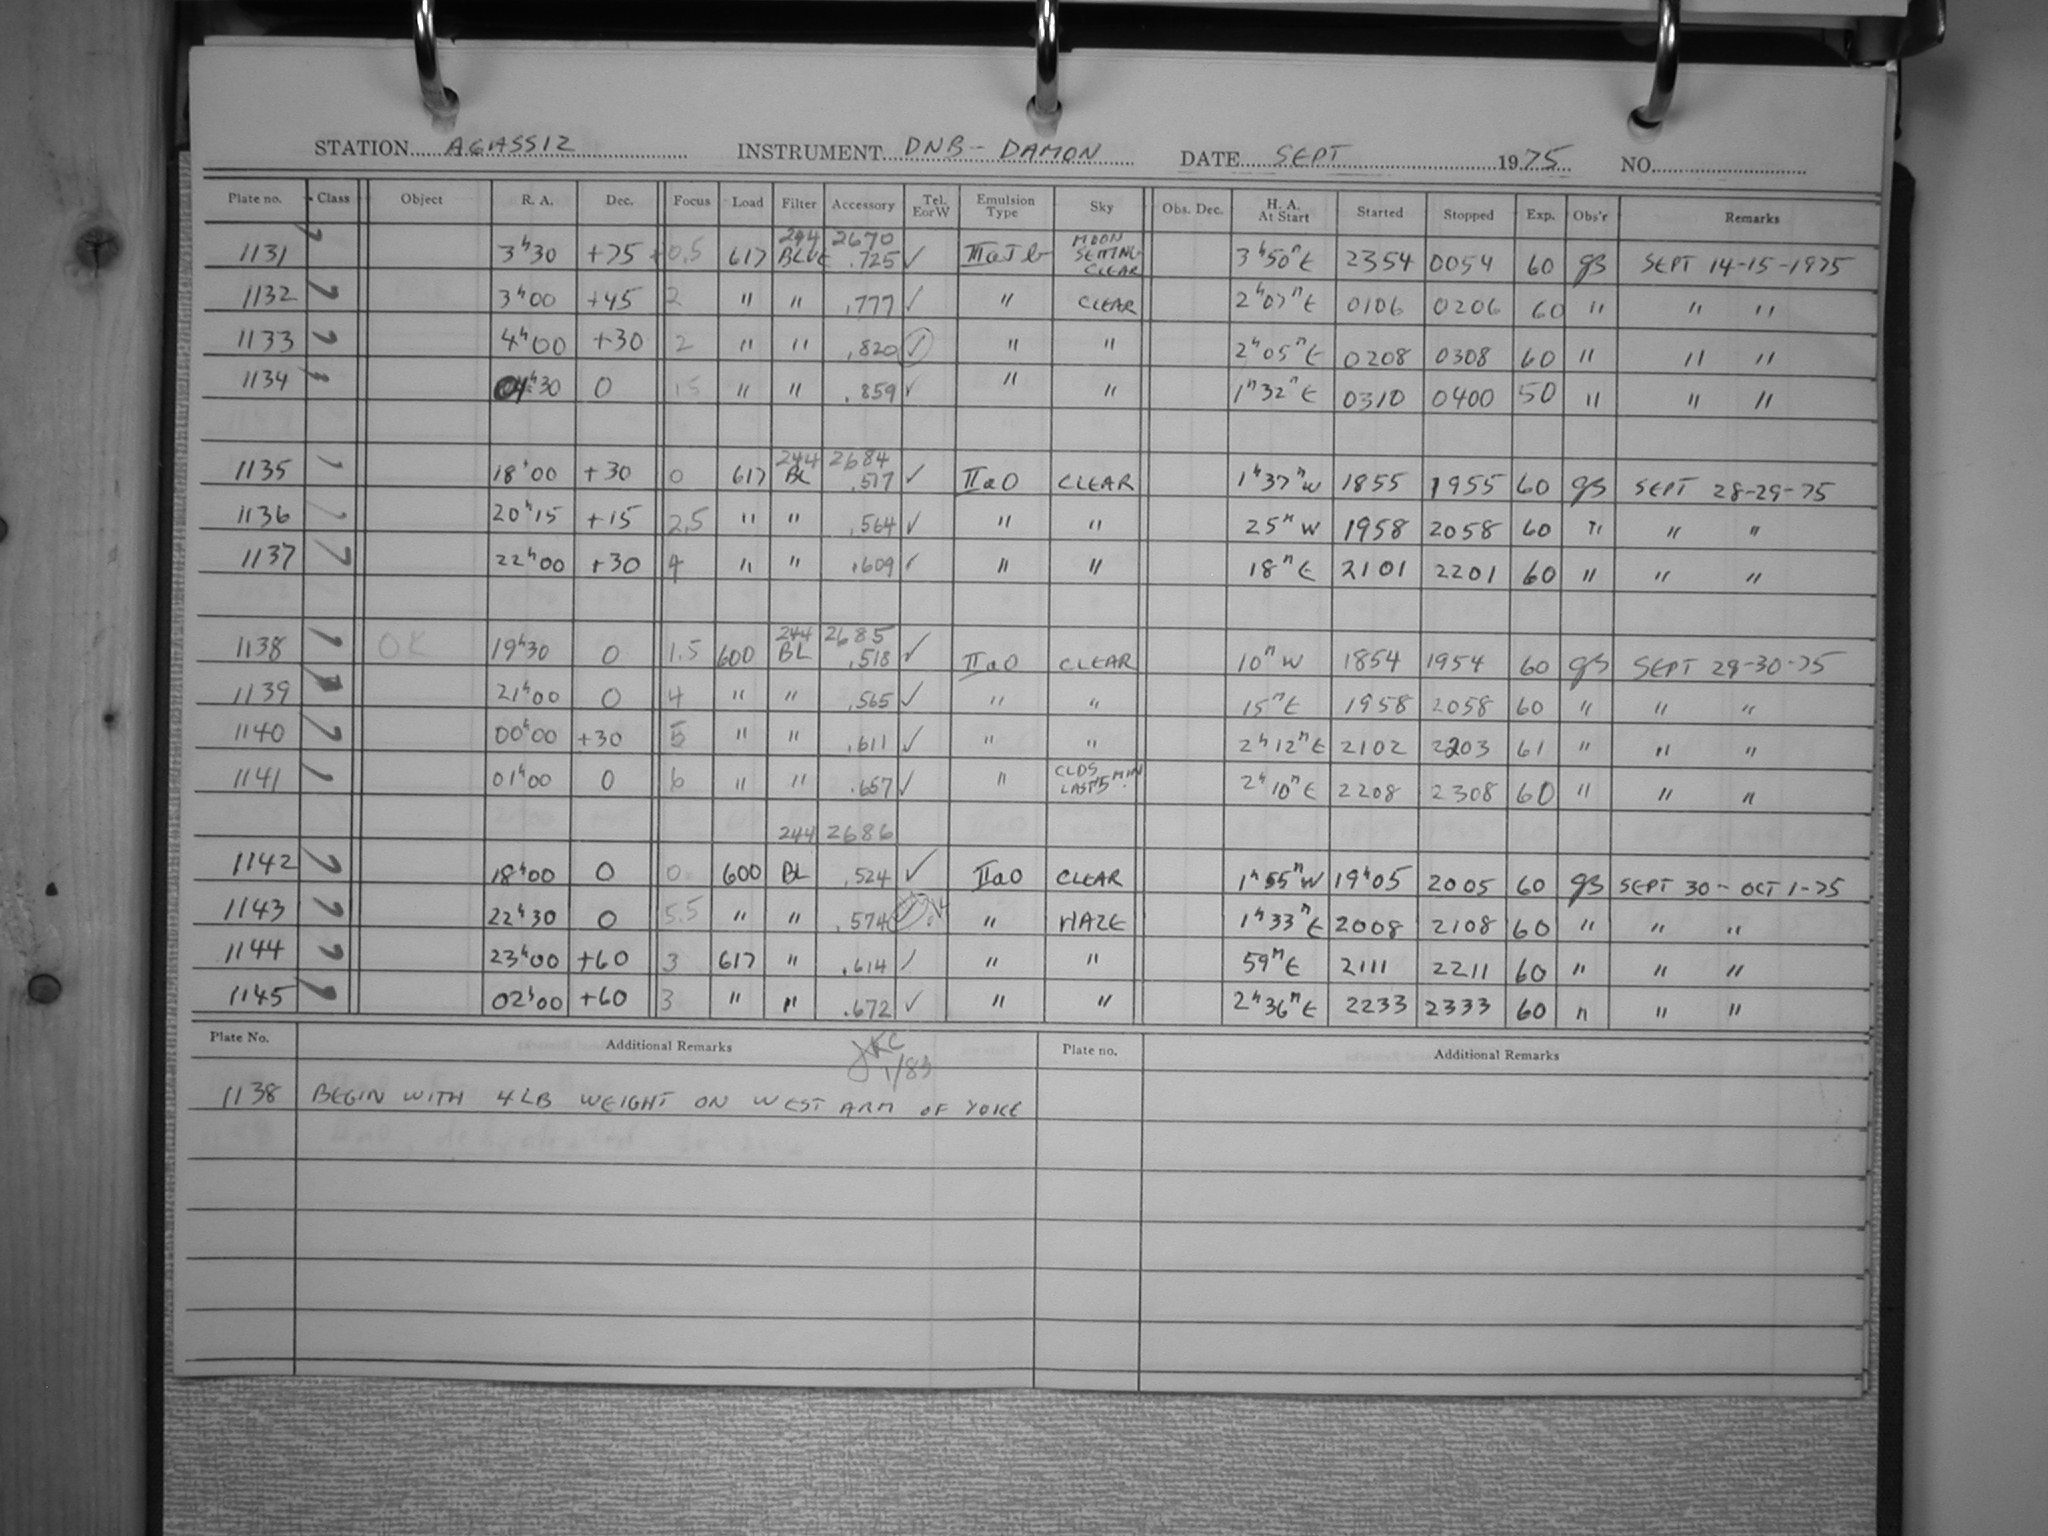 STATION AGASSIZ INSTRUMENT DNB - DAMON DATE SEPT 1975 NO.
Plate no. Class Object R. A. Dec. Focus Load Filter Accessory Tel. E or W Emulsion Type Sky Obs. Dec. H. A. At Start Started Stopped Exp. Obs'r Remarks
244 2670 MOON
1131 3h30 +75 0.5 617 BLUE .725 ✓ IIIaJ b SETTING CLEAR 3h50mE 2354 0054 60 gs SEPT 14-15-1975
1132 3h00 +45 2 " " .777 ✓ " CLEAR 2h07mE 0106 0206 60 " " "
1133 4h00 +30 2 " " .820 ✓ " " 2h05mE 0208 0308 60 " " "
1134 04h30 0 1.5 " " .859 ✓ " " 1h32mE 0310 0400 50 " " "
244 2684
1135 18h00 +30 0 617 BL .517 ✓ IIaO CLEAR 1h37mW 1855 1955 60 gs SEPT 28-29-75
1136 20h15 +15 2.5 " " .564 ✓ " " 25mW 1958 2058 60 " " "
1137 22h00 +30 4 " " .609 ✓ " " 18mE 2101 2201 60 " " "
244 2685
1138 OK 19h30 0 1.5 600 BL .518 ✓ IIaO CLEAR 10mW 1854 1954 60 gs SEPT 29-30-75
1139 21h00 0 4 " " .565 ✓ " " 15mE 1958 2058 60 " " "
1140 00h00 +30 5 " " .611 ✓ " " 2h12mE 2102 2203 61 " " "
1141 01h00 0 6 " " .657 ✓ " CLDS LAST 5 MIN. 2h10mE 2208 2308 60 " " "
244 2686
1142 18h00 0 0 600 BL .524 ✓ IIaO CLEAR 1h55mW 19h05 2005 60 gs SEPT 30 - OCT 1-75
1143 22h30 0 5.5 " " .574 ✓ " HAZE 1h33mE 2008 2108 60 " " "
1144 23h00 +60 3 617 " .614 ✓ " " 59mE 2111 2211 60 " " "
1145 02h00 +60 3 " " .672 ✓ " " 2h36mE 2233 2333 60 " " "
Plate No. Additional Remarks Plate no. Additional Remarks
JKC
1/83
1138 BEGIN WITH 4LB WEIGHT ON WEST ARM OF YOKE